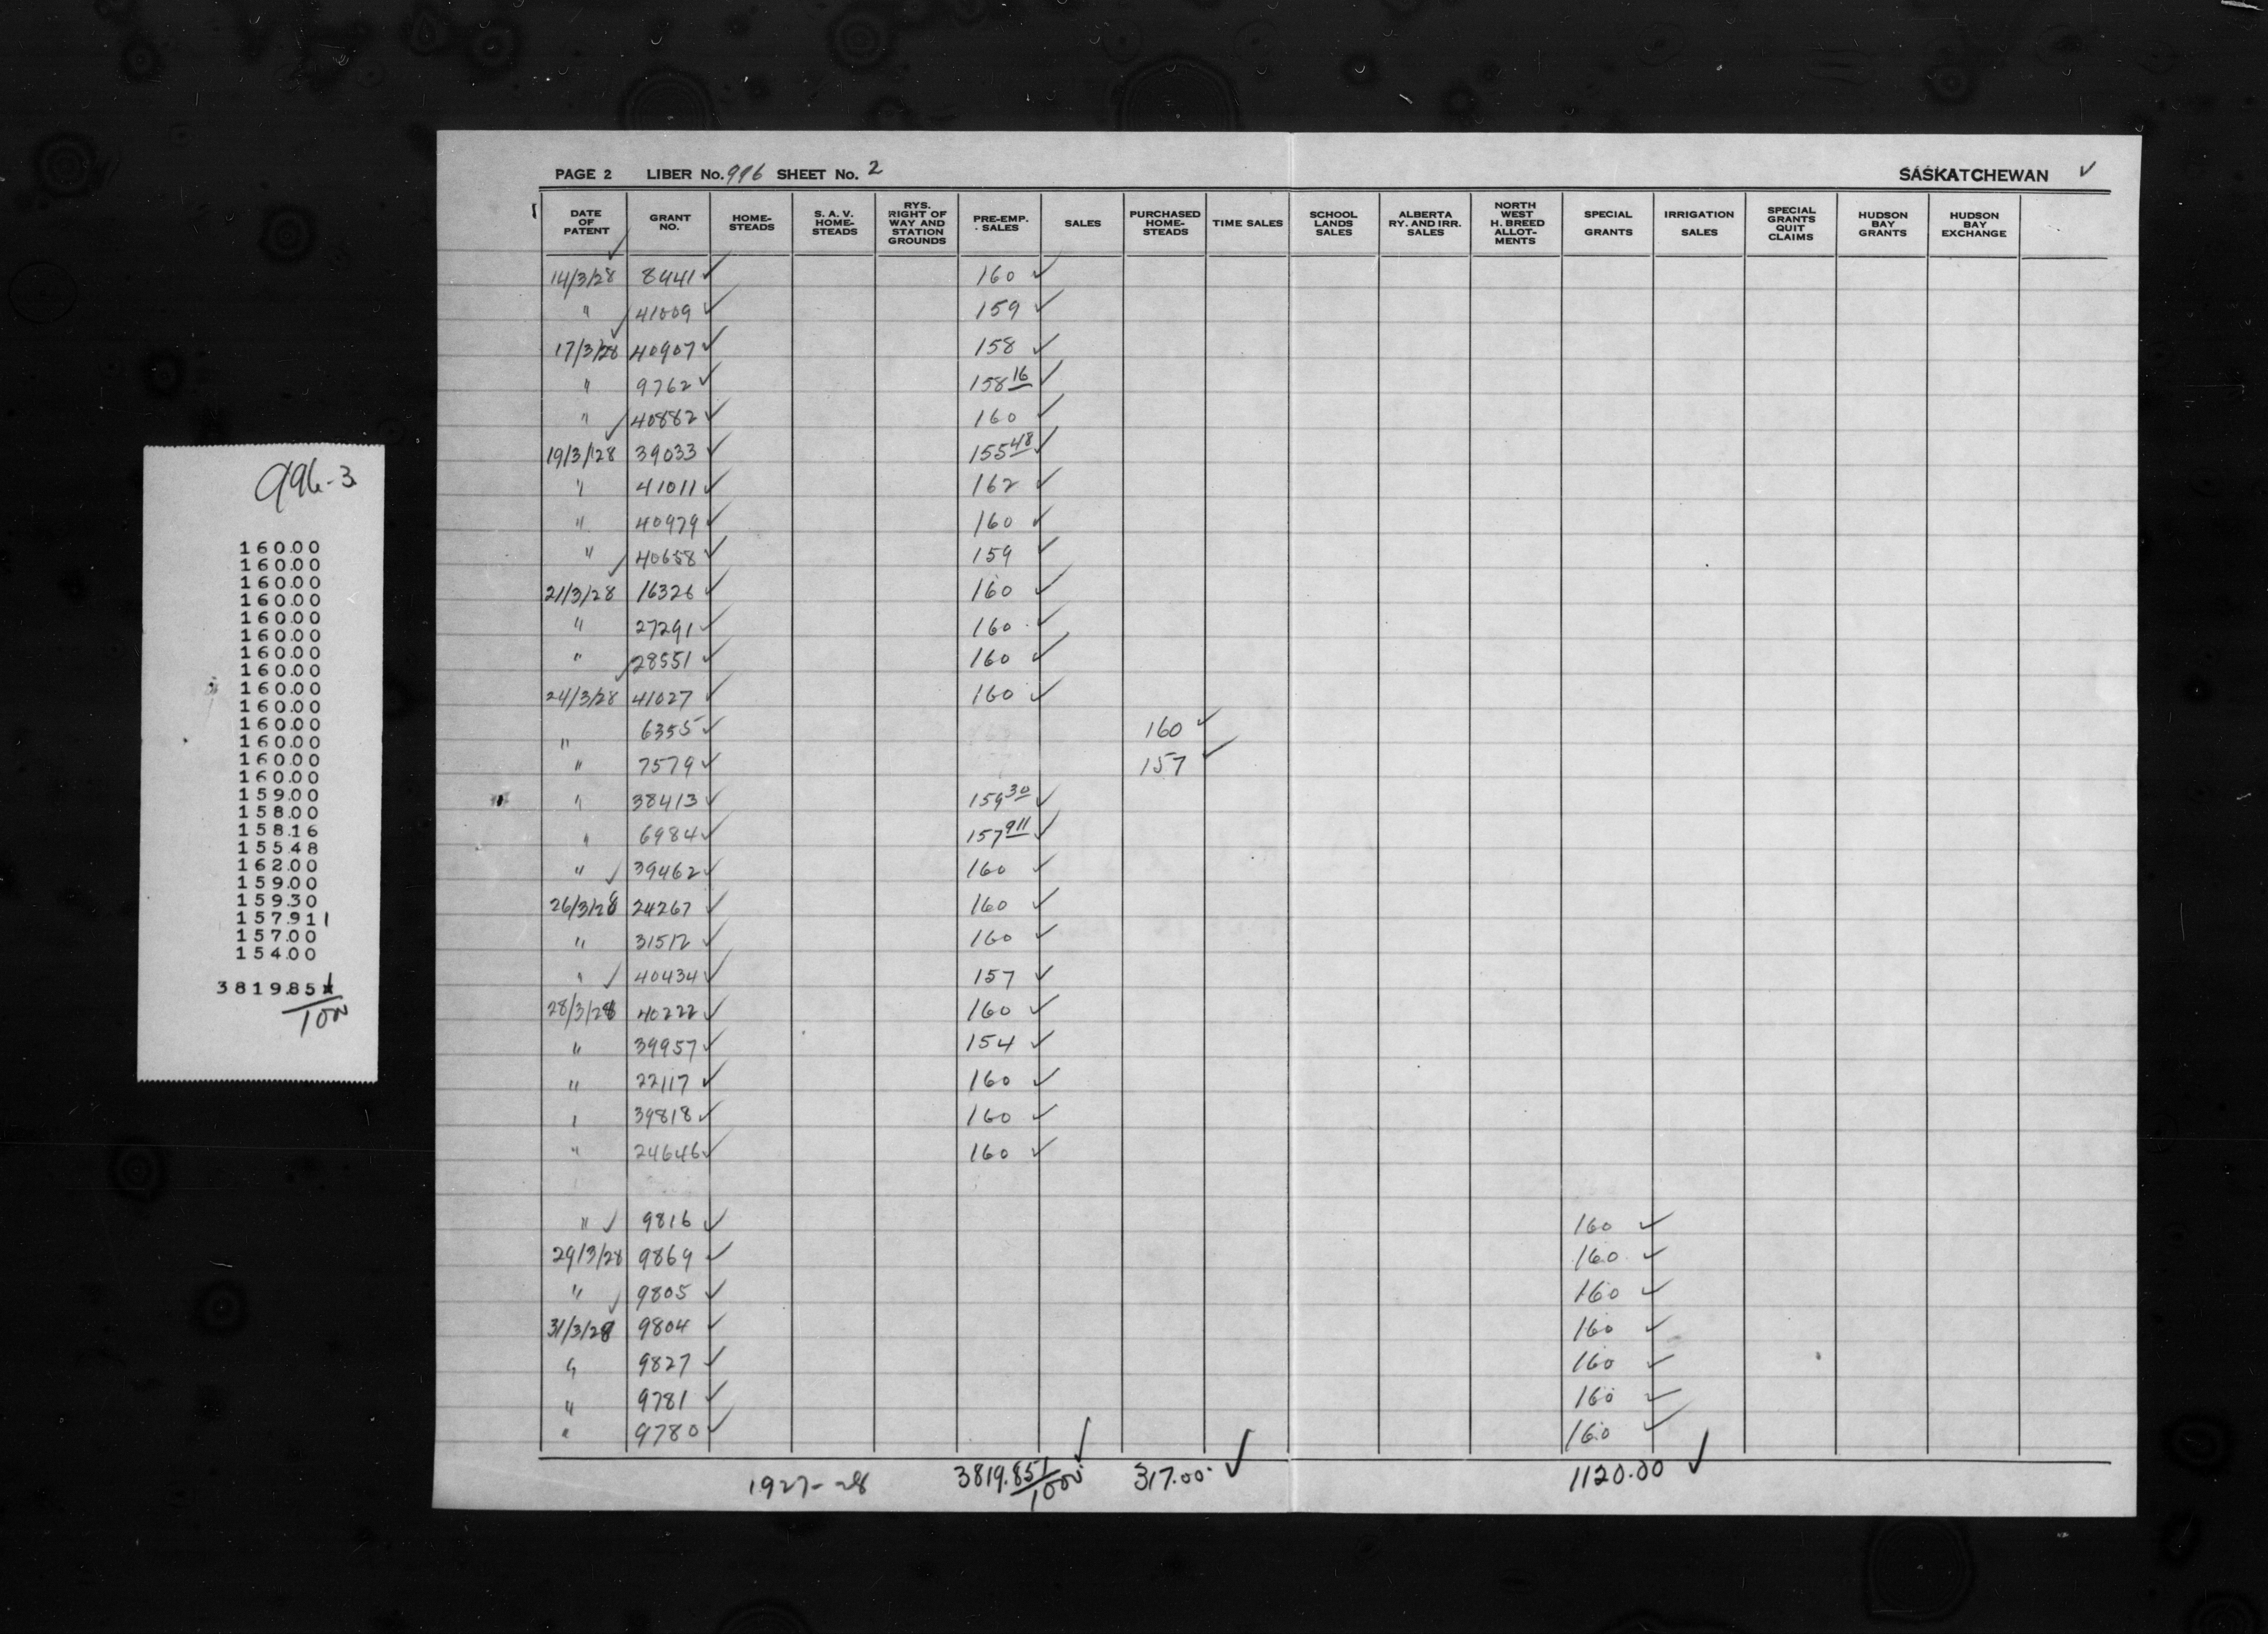 996-3
160.00
160.00
160.00
160.00
160.00
160.00
160.00
160.00
160.00
160.00
160.00
160.00
160.00
160.00
159.00
158.00
158.16
155.48
162.00
159.00
159.30
157.911
157.00
154.00
3819.851
/1000
PAGE 2 LIBER No. 996 SHEET No. 2 SASKATCHEWAN ✓
DATE OF PATENT GRANT NO. HOME-STEADS S. A. V. HOME-STEADS RYS. RIGHT OF WAY AND STATION GROUNDS PRE-EMP. SALES SALES PURCHASED HOME-STEADS TIME SALES SCHOOL LANDS SALES ALBERTA RY. AND IRR. SALES NORTH WEST H. BREED ALLOT-MENTS SPECIAL GRANTS IRRIGATION SALES SPECIAL GRANTS QUIT CLAIMS HUDSON BAY GRANTS HUDSON BAY EXCHANGE
14/3/28 8441 ✓ 160 ✓
" 41009 ✓ 159 ✓
17/3/28 40907 ✓ 158 ✓
" 9762 ✓ 158 16 ✓
" 40882 ✓ 160 ✓
19/3/28 39033 ✓ 155 48 ✓
" 41011 ✓ 162 ✓
" 40979 ✓ 160 ✓
" 40658 ✓ 159 ✓
21/3/28 16326 ✓ 160 ✓
" 27291 ✓ 160 ✓
" 28551 ✓ 160 ✓
24/3/28 41027 ✓ 160 ✓
" 6355 ✓ 160 ✓
" 7579 ✓ 157 ✓
" 38413 ✓ 159 30 ✓
" 6984 ✓ 157 911 ✓
" 39462 ✓ 160 ✓
26/3/28 24267 ✓ 160 ✓
" 31512 ✓ 160 ✓
" 40434 ✓ 157 ✓
28/3/28 40222 ✓ 160 ✓
" 39957 ✓ 154 ✓
" 22117 ✓ 160 ✓
" 39818 ✓ 160 ✓
" 24646 ✓ 160 ✓
" 9816 ✓ 160 ✓
29/3/28 9869 ✓ 160 ✓
" 9805 ✓ 160 ✓
31/3/28 9804 ✓ 160 ✓
" 9827 ✓ 160 ✓
" 9781 ✓ 160 ✓
" 9780 ✓ 160 ✓
1927-28 3819.851/1000 ✓ 317.00 ✓ 1120.00 ✓